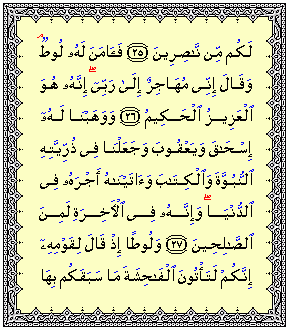 لَكُم مِّن نَّـٰصِرِينَ ﴿٢٥﴾ فَـَٔامَنَ لَهُۥ لُوطٌ ۘ
وَقَالَ إِنِّى مُهَاجِرٌ إِلَىٰ رَبِّىٓ ۖ إِنَّهُۥ هُوَ
ٱلْعَزِيزُ ٱلْحَكِيمُ ﴿٢٦﴾ وَوَهَبْنَا لَهُۥٓ
إِسْحَـٰقَ وَيَعْقُوبَ وَجَعَلْنَا فِى ذُرِّيَّتِهِ
ٱلنُّبُوَّةَ وَٱلْكِتَـٰبَ وَءَاتَيْنَـٰهُ أَجْرَهُۥ فِى
ٱلدُّنْيَا ۖ وَإِنَّهُۥ فِى ٱلْـَٔاخِرَةِ لَمِنَ
ٱلصَّـٰلِحِينَ ﴿٢٧﴾ وَلُوطًا إِذْ قَالَ لِقَوْمِهِۦٓ
إِنَّكُمْ لَتَأْتُونَ ٱلْفَـٰحِشَةَ مَا سَبَقَكُم بِهَا